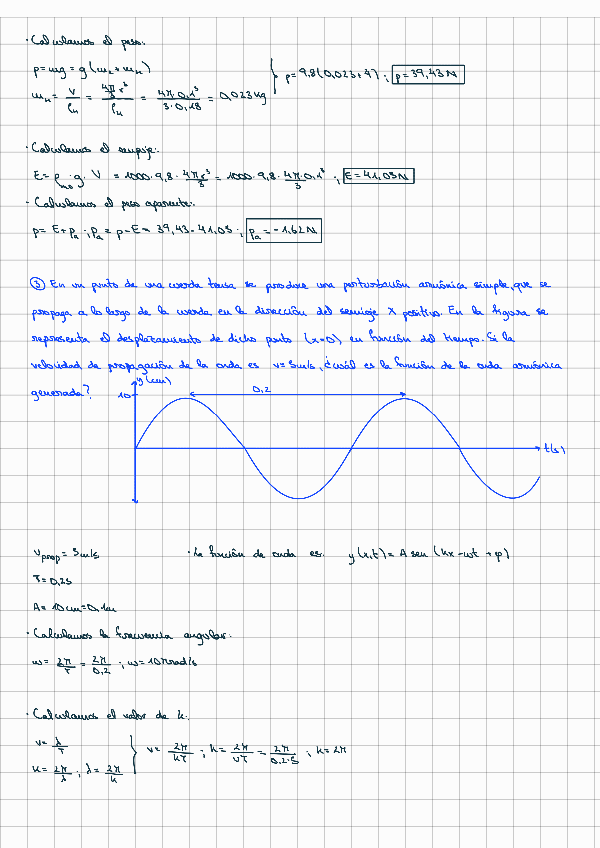 · Calculamos el peso:
p=mg=g(m_L+m_H)
m_H = V/ρ_H = (4π/3 r³)/ρ_H = 4π·0,1³/3·0,18 = 0,023 kg } p=9,8(0,023+4) ; p=39,43 N
· Calculamos el empuje:
E=ρ_H₂O · g · V = 1000·9,8· 4πr³/3 = 1000·9,8· 4π·0,1³/3 ; E=41,05N
· Calculamos el peso aparente:
p= E+p_a ; p_a = p-E = 39,43-41,05 ; p_a=-1,62N
③ En un punto de una cuerda tensa se produce una perturbación armónica simple, que se
propaga a lo largo de la cuerda en la dirección del semieje X positivo. En la figura se
representa el desplazamiento de dicho punto (x=0) en función del tiempo. Si la
velocidad de propagación de la onda es v=5m/s, ¿cuál es la función de la onda armónica
generada?
y(cm)
10
0,2
t(s)
v_prop = 5m/s · La función de onda es: y(x,t) = A sen (kx-ωt+φ)
T=0,2s
A= 10cm=0,1m
· Calculamos la frecuencia angular:
ω= 2π/T = 2π/0,2 ; ω=10π rad/s
· Calculamos el valor de k:
v= λ/T
k= 2π/λ ; λ= 2π/k } v= 2π/kT ; k= 2π/vT = 2π/0,2·5 ; k=2π